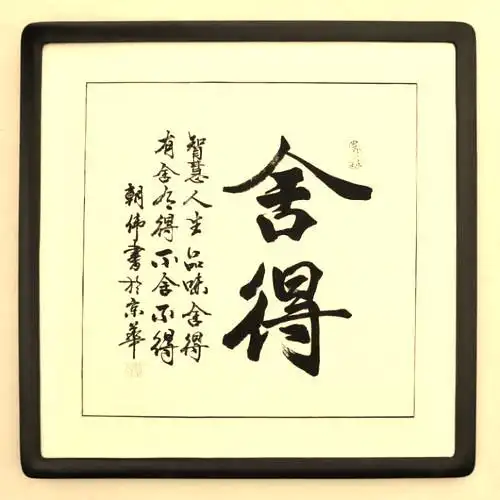 舍得
智慧人生品味舍得
有舍才得不舍不得
朝伟书于京华